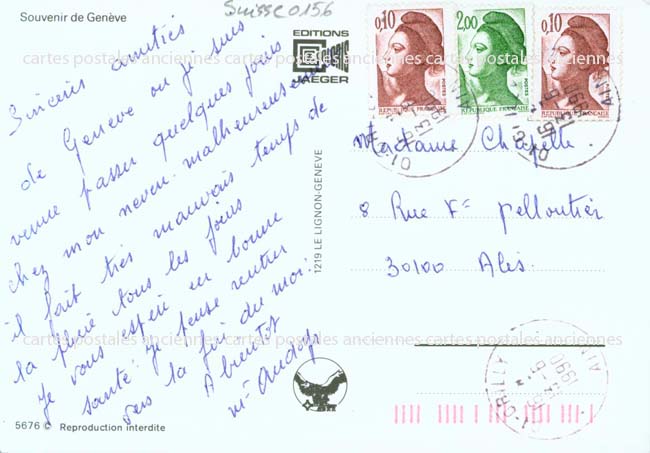 Suisse 0156
Souvenir de Genève
Sincères amitiés
de Genève ou je suis
venue passer quelques jours
chez mon neveu. malheureusement
il fait très mauvais temps de
la pluie tous les jours
Je vous espère en bonne
santé. Je pense rentrer
vers la fin du mois.
A bientot
EDITIONS
JAEGER
1219 LE LIGNON-GENEVE
0,10
REPUBLIQUE FRANÇAISE
2,00
POSTES
REPUBLIQUE FRANÇAISE
0,10
REPUBLIQUE FRANÇAISE
Madame Chapelle
8 Rue Pelloutier
30100 Alès.
cartes postales anciennes cartes postales anciennes cartes postales anciennes
cartes postales anciennes cartes postales anciennes cartes postales anciennes
AIN
1990
5676 © Reproduction interdite